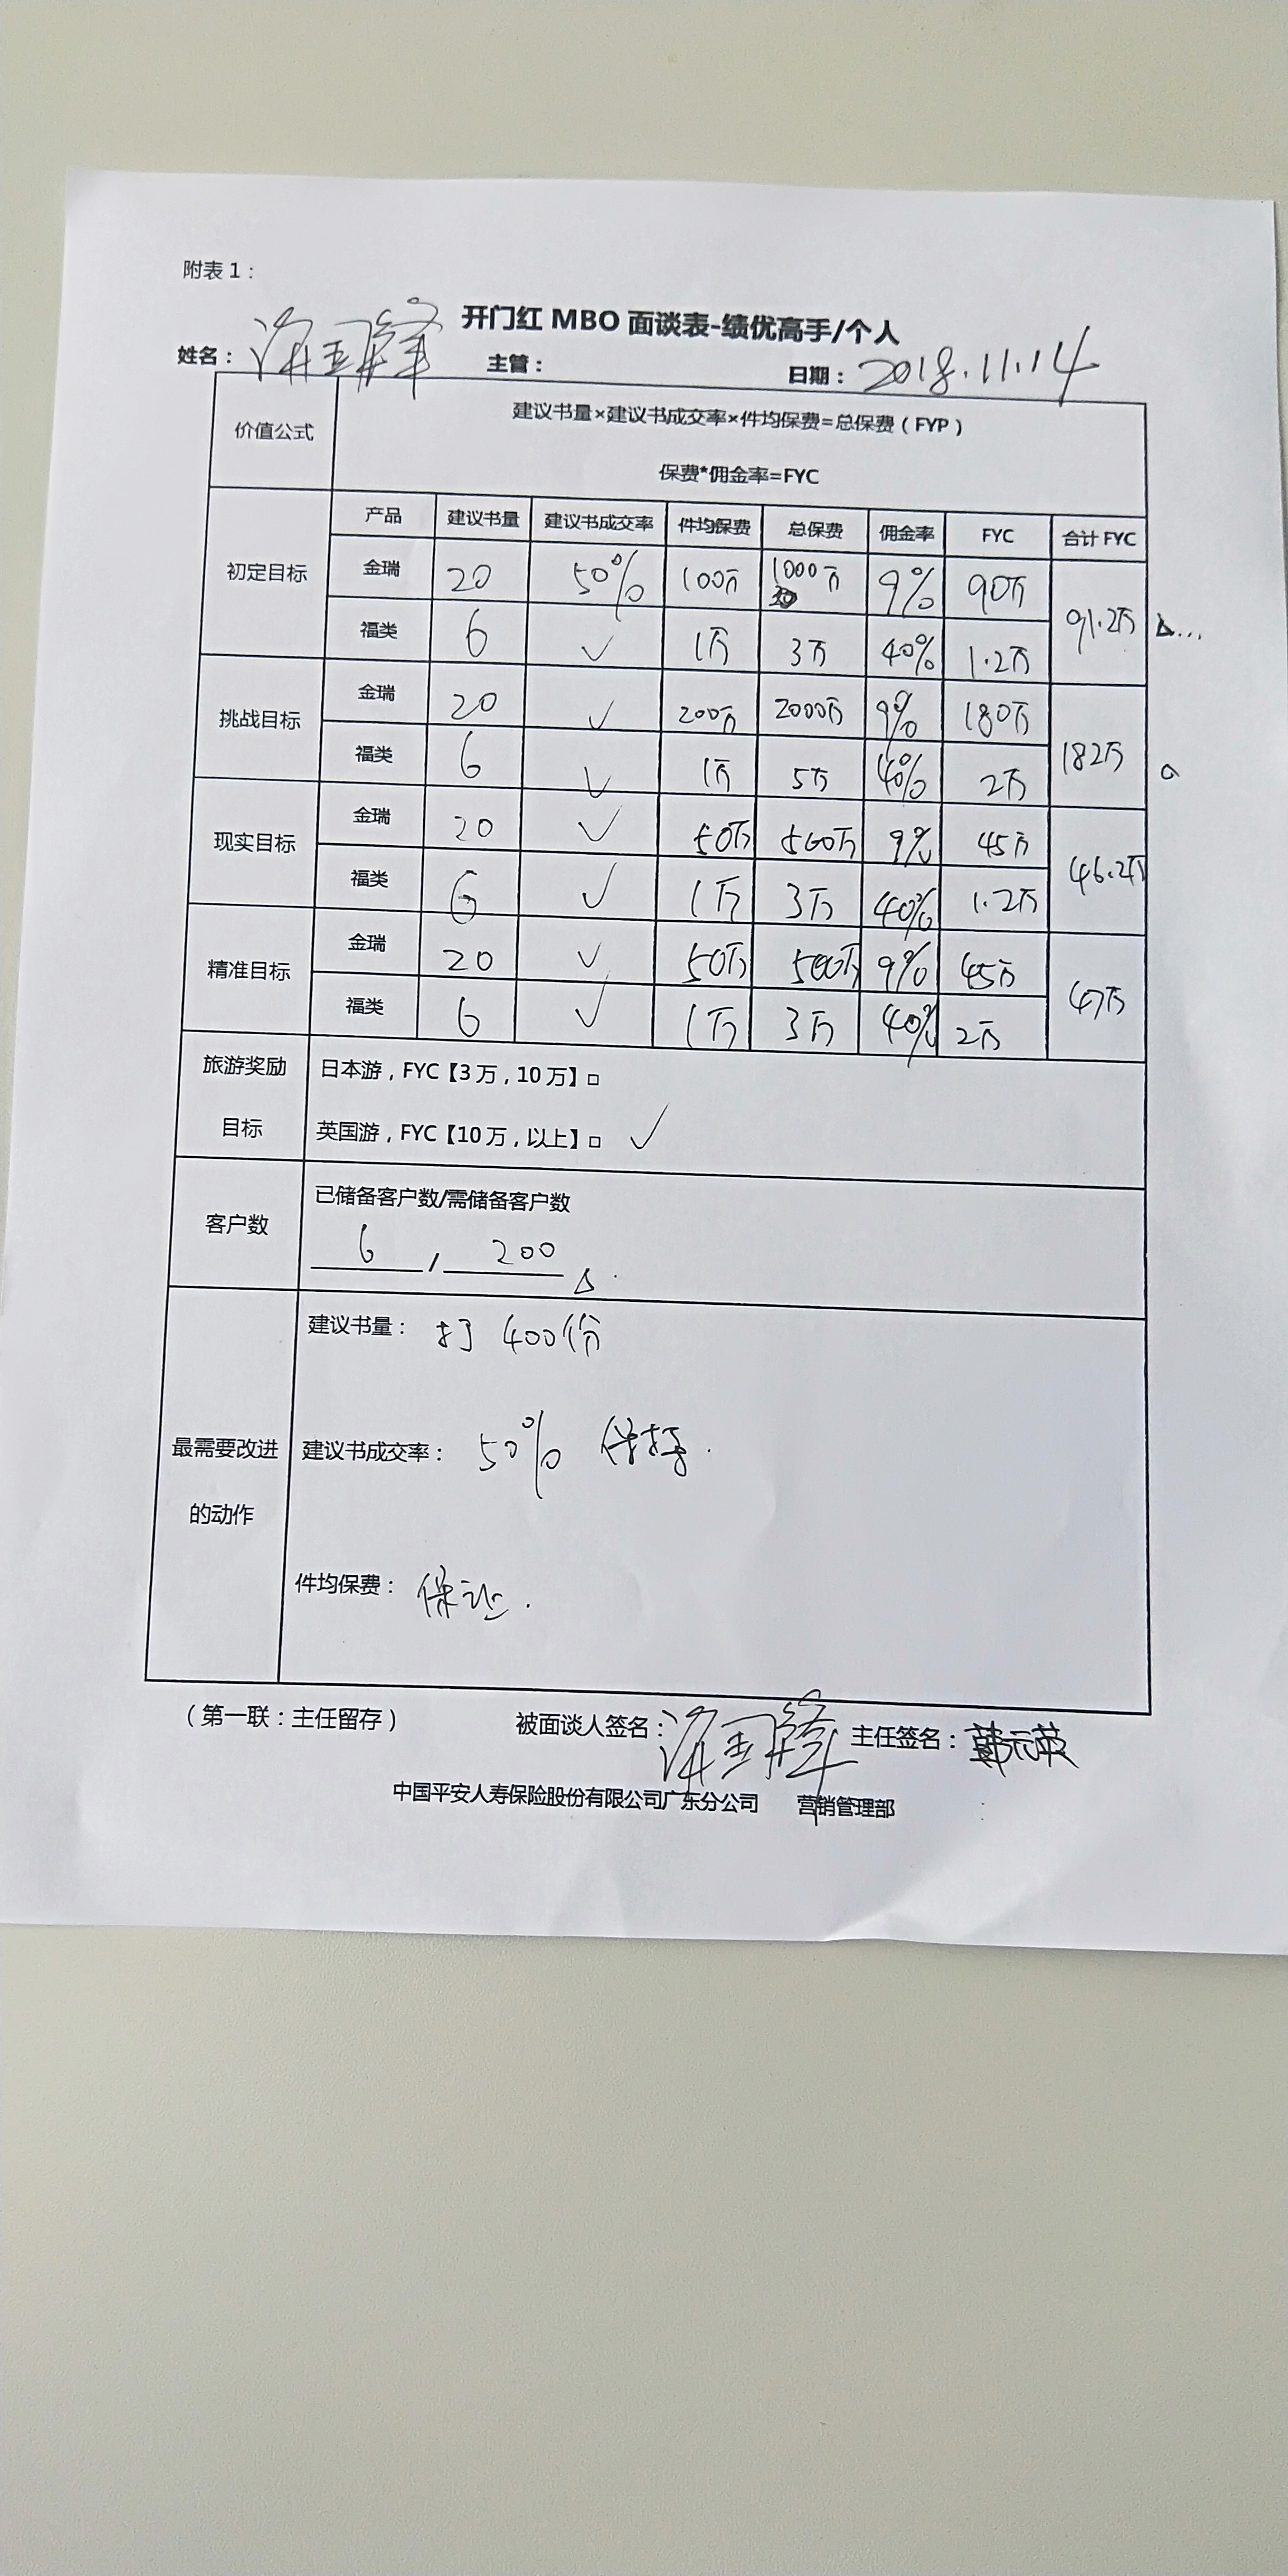 附表 1：
开门红 MBO 面谈表-绩优高手/个人
姓名： 主管： 日期：2018.11.14
价值公式 建议书量×建议书成交率×件均保费=总保费（FYP）
保费*佣金率=FYC
产品 建议书量 建议书成交率 件均保费 总保费 佣金率 FYC 合计 FYC
初定目标 金瑞 20 50% 100万 1000万 9% 90万 91.2万
福类 6 ✓ 1万 3万 40% 1.2万
挑战目标 金瑞 20 ✓ 200万 2000万 9% 180万 182万
福类 6 ✓ 1万 5万 40% 2万
现实目标 金瑞 20 ✓ 50万 500万 9% 45万 46.2万
福类 6 ✓ 1万 3万 40% 1.2万
精准目标 金瑞 20 ✓ 50万 500万 9% 45万 47万
福类 6 ✓ 1万 3万 40% 2万
旅游奖励目标 日本游，FYC【3 万，10 万】□
英国游，FYC【10 万，以上】□ ✓
客户数 已储备客户数/需储备客户数
6 / 200
最需要改进的动作 建议书量：打 400份
建议书成交率：50% 保持.
件均保费：保证.
（第一联：主任留存） 被面谈人签名： 主任签名：韩元英
中国平安人寿保险股份有限公司广东分公司 营销管理部